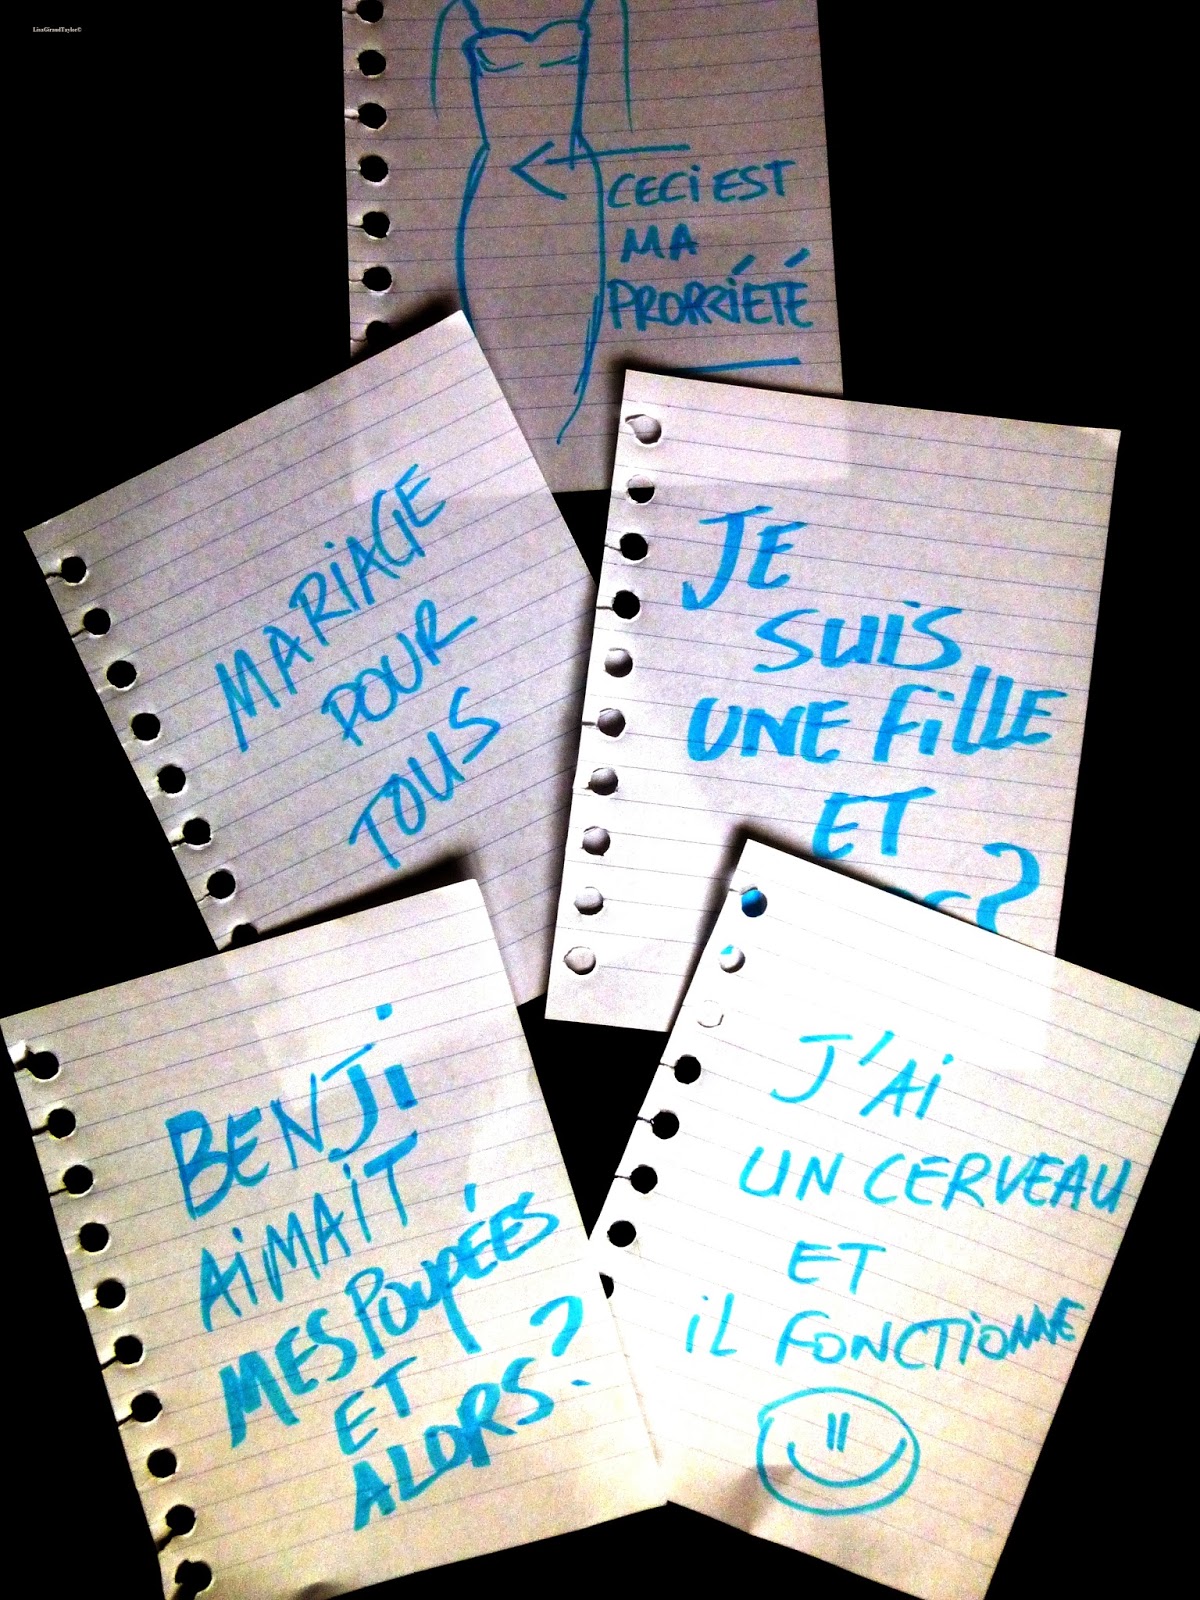 LisaGiraudTaylor©
CECI EST
MA
PROPRIÉTÉ
MARIAGE
POUR
TOUS
JE
SUIS
UNE FILLE
ET
?
BENJI
AIMAIT
MES POUPÉES
ET
ALORS?
J'AI
UN CERVEAU
ET
IL FONCTIONNE